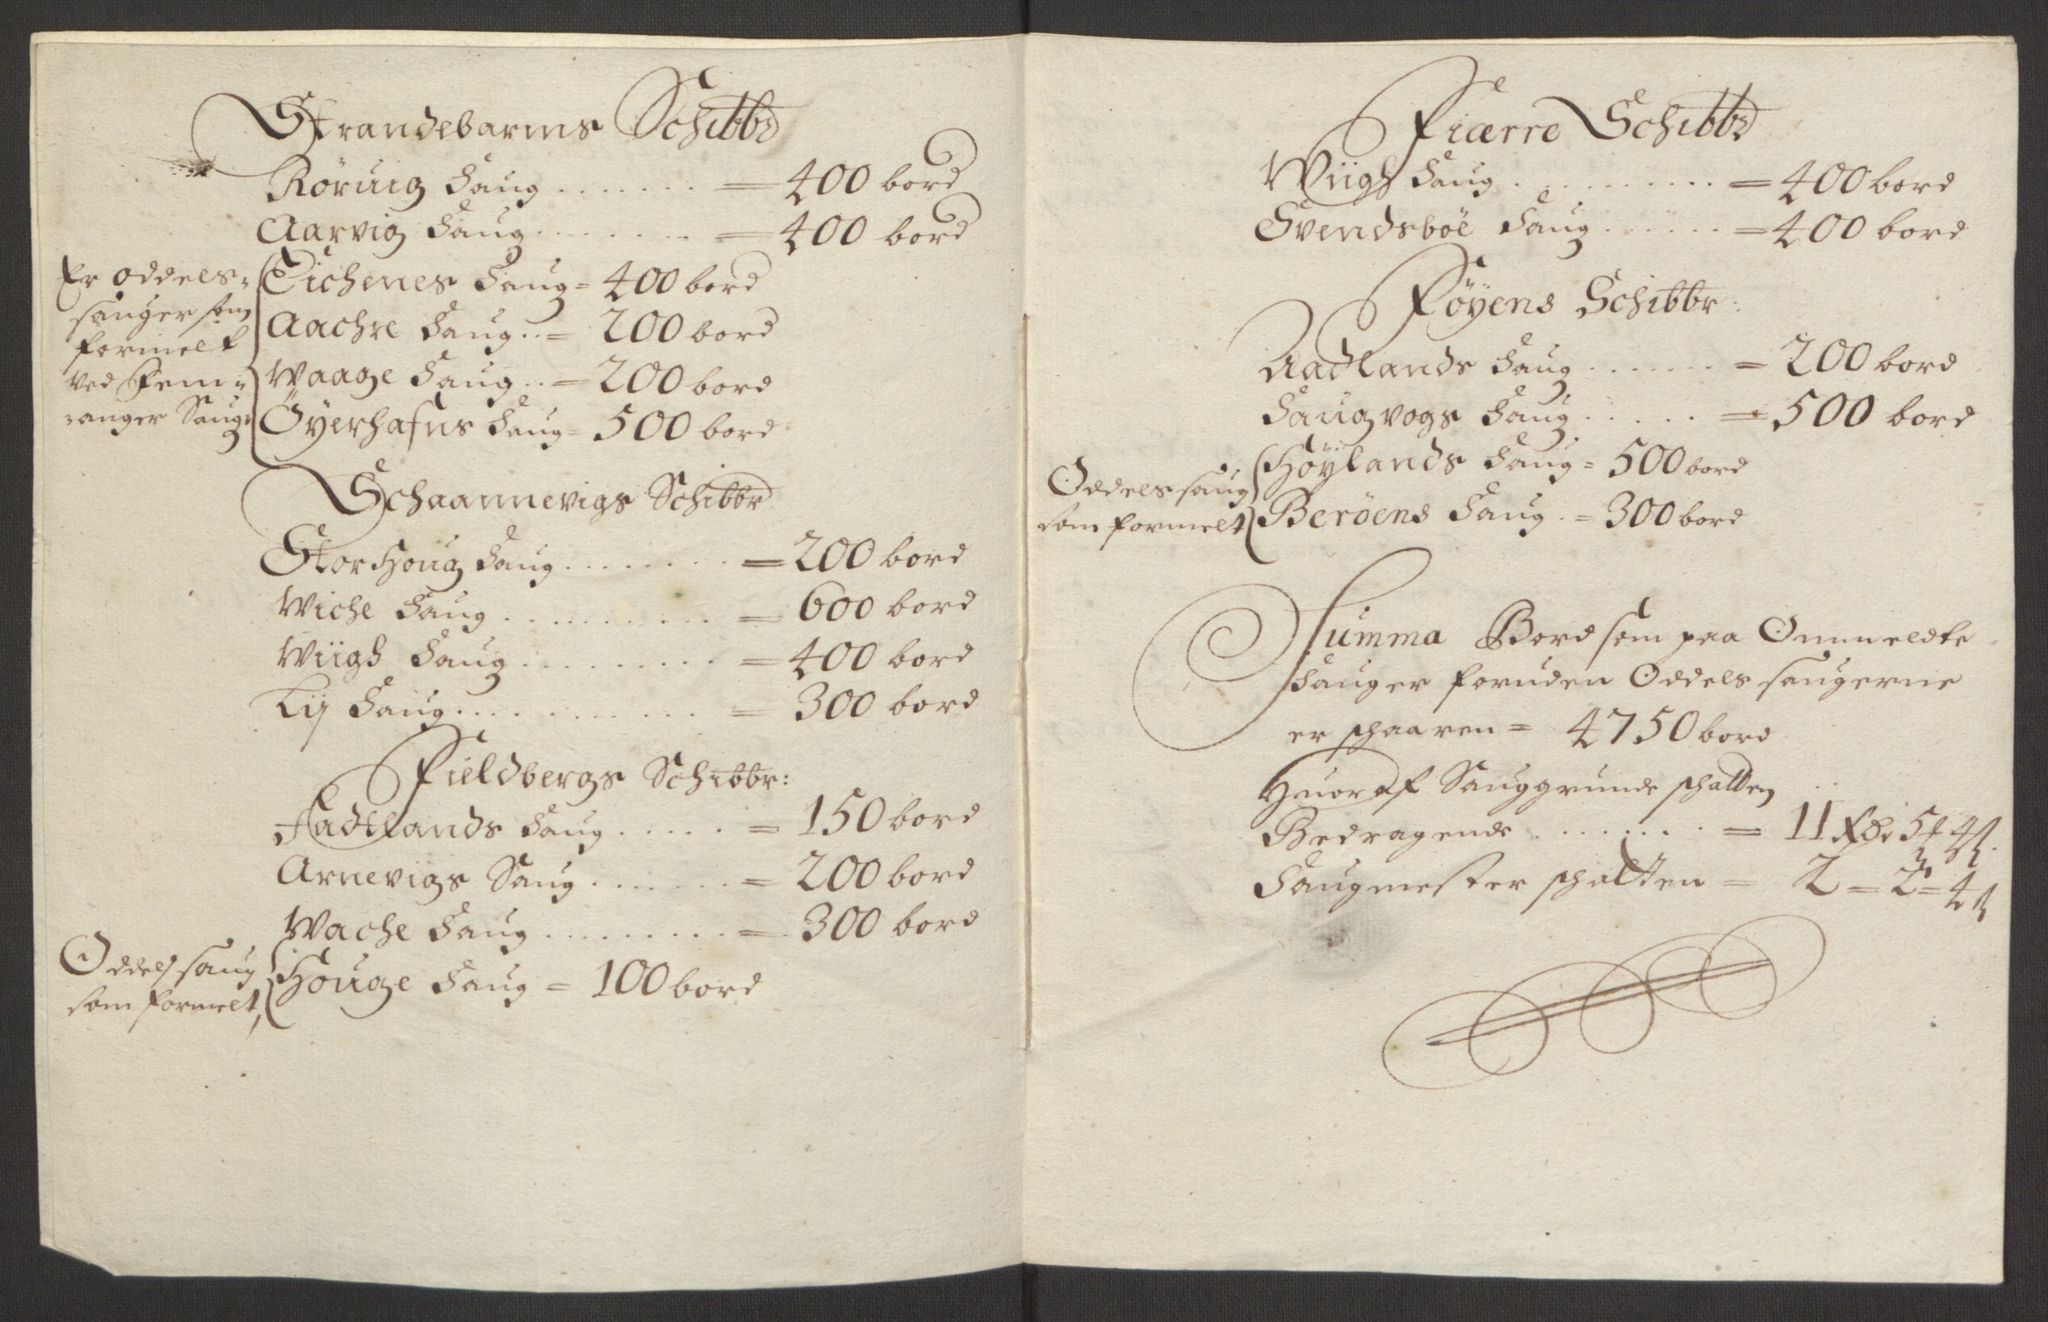 Strandebarms Schibbr
Röruig Saug . . . . . . . = 400 bord
Aarvig Saug . . . . . . . = 400 bord
Er oddels-
sauger som
formelt
ved Fem-
anger Saug
Eichenes Saug = 400 bord
Aachre Saug . . = 200 bord
Waage Saug . . = 200 bord
Öyerhafns Saug = 500 bord
Schaannevigs Schibbr
Storhoug Saug . . . . . . . . = 200 bord
Wiche Saug . . . . . . . . . = 600 bord
Wiigh Saug . . . . . . . . . = 400 bord
Lij Saug . . . . . . . . . . . = 300 bord
Fieldbergs Schibbr:
Aadtlands Saug . . . . . = 150 bord
Arnevigs Saug . . . . . . = 200 bord
Wache Saug . . . . . . . . = 300 bord
Oddels saug
som formelt,
Houge Saug = 100 bord
Fiærre Schibbr
Wiigh Saug . . . . . . . . . . = 400 bord
Svendsböe Saug . . . . . . = 400 bord
Föyens Schibbr:
Aadlands Saug . . . . . . . = 200 bord
Saugvogs Saug . . . . . = 500 bord
Oddels saug
som formelt
Höylands Saug = 500 bord
Beröens Saug . = 300 bord
Summa Bord som paa Ommeldte
Sauger foruden Oddels saugerne
er schaaren = 4750 bord
Huoraf Sauggrunds schatten
Bedragende . . . . . . . = 11 Rdr 5 4
Saugmester schatten = 2 = 2 = 4